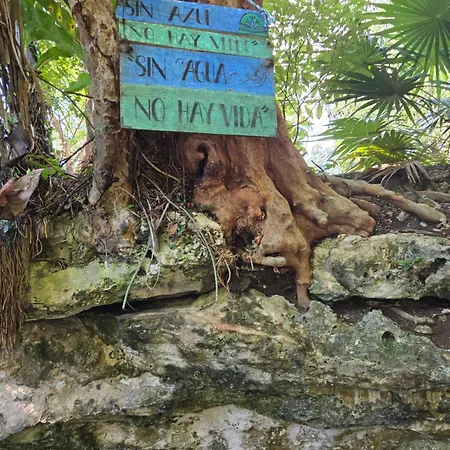 SIN AZUL
NO HAY VERDE
SIN "AGUA
NO HAY VIDA"